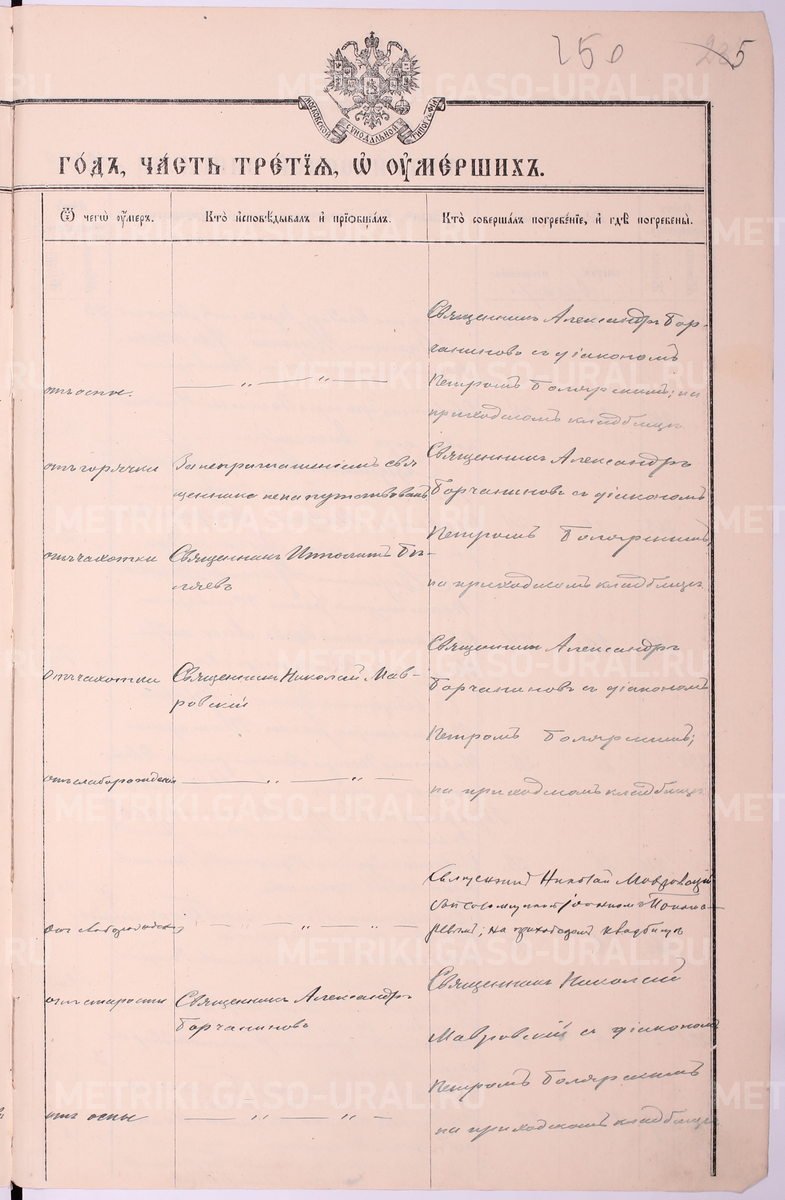 250
5
МОСКОВСКОЙ СѴНОДАЛЬНОЙ ТИПОГРАФІИ
ГОДЪ, ЧАСТЬ ТРЕТІЯ, Ѡ ОУМЕРШИХЪ.
Ѿ чегѡ оумеръ.
Кто исповѣдывалъ и пріобщалъ.
Кто совершалъ погребеніе, и гдѣ погребены.
Священникъ Александръ Бор-
чаниновъ съ діакономъ
отъ оспы.
Петромъ Боляренимъ; на
приходскомъ кладбищѣ
отъ горячки
За неприглашеніемъ свя
щенника не напутствованъ
Священникъ Александръ
Борчаниновъ съ діакономъ
Петромъ
на приходскомъ кладбищѣ
отъ чахотки
Священникъ Ипполитъ
отъ чахотки
Священникъ Николай Мав-
ровскій
Священникъ Александръ
Борчаниновъ съ діакономъ
Петромъ
на приходскомъ кладбищѣ
отъ слаборожденія
Священникъ Николай Мавровскій
на приходскомъ кладбищѣ
отъ слаборожденія
отъ старости
Священникъ Александръ
Борчаниновъ
Священникъ Николай
Мавровскій съ діакономъ
Петромъ
на приходскомъ кладбищѣ
отъ оспы
METRIKI.GASO-URAL.RU